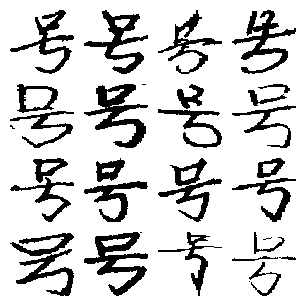 号号号号
号号号号
号号号号
号号号号